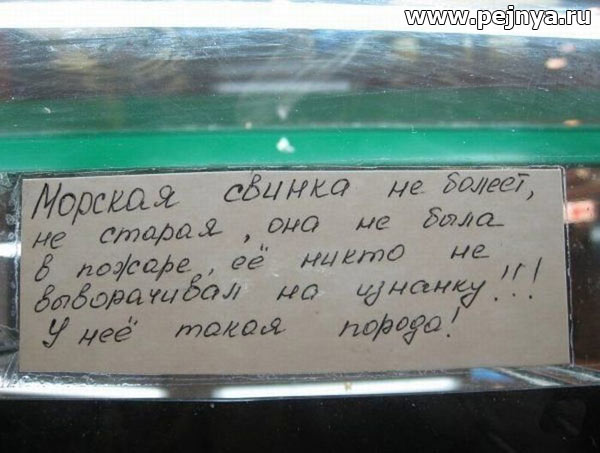 www.pejnya.ru
Морская свинка не болеет,
не старая, она не была
в пожаре, её никто не
выворачивал на изнанку!!!
У неё такая порода!